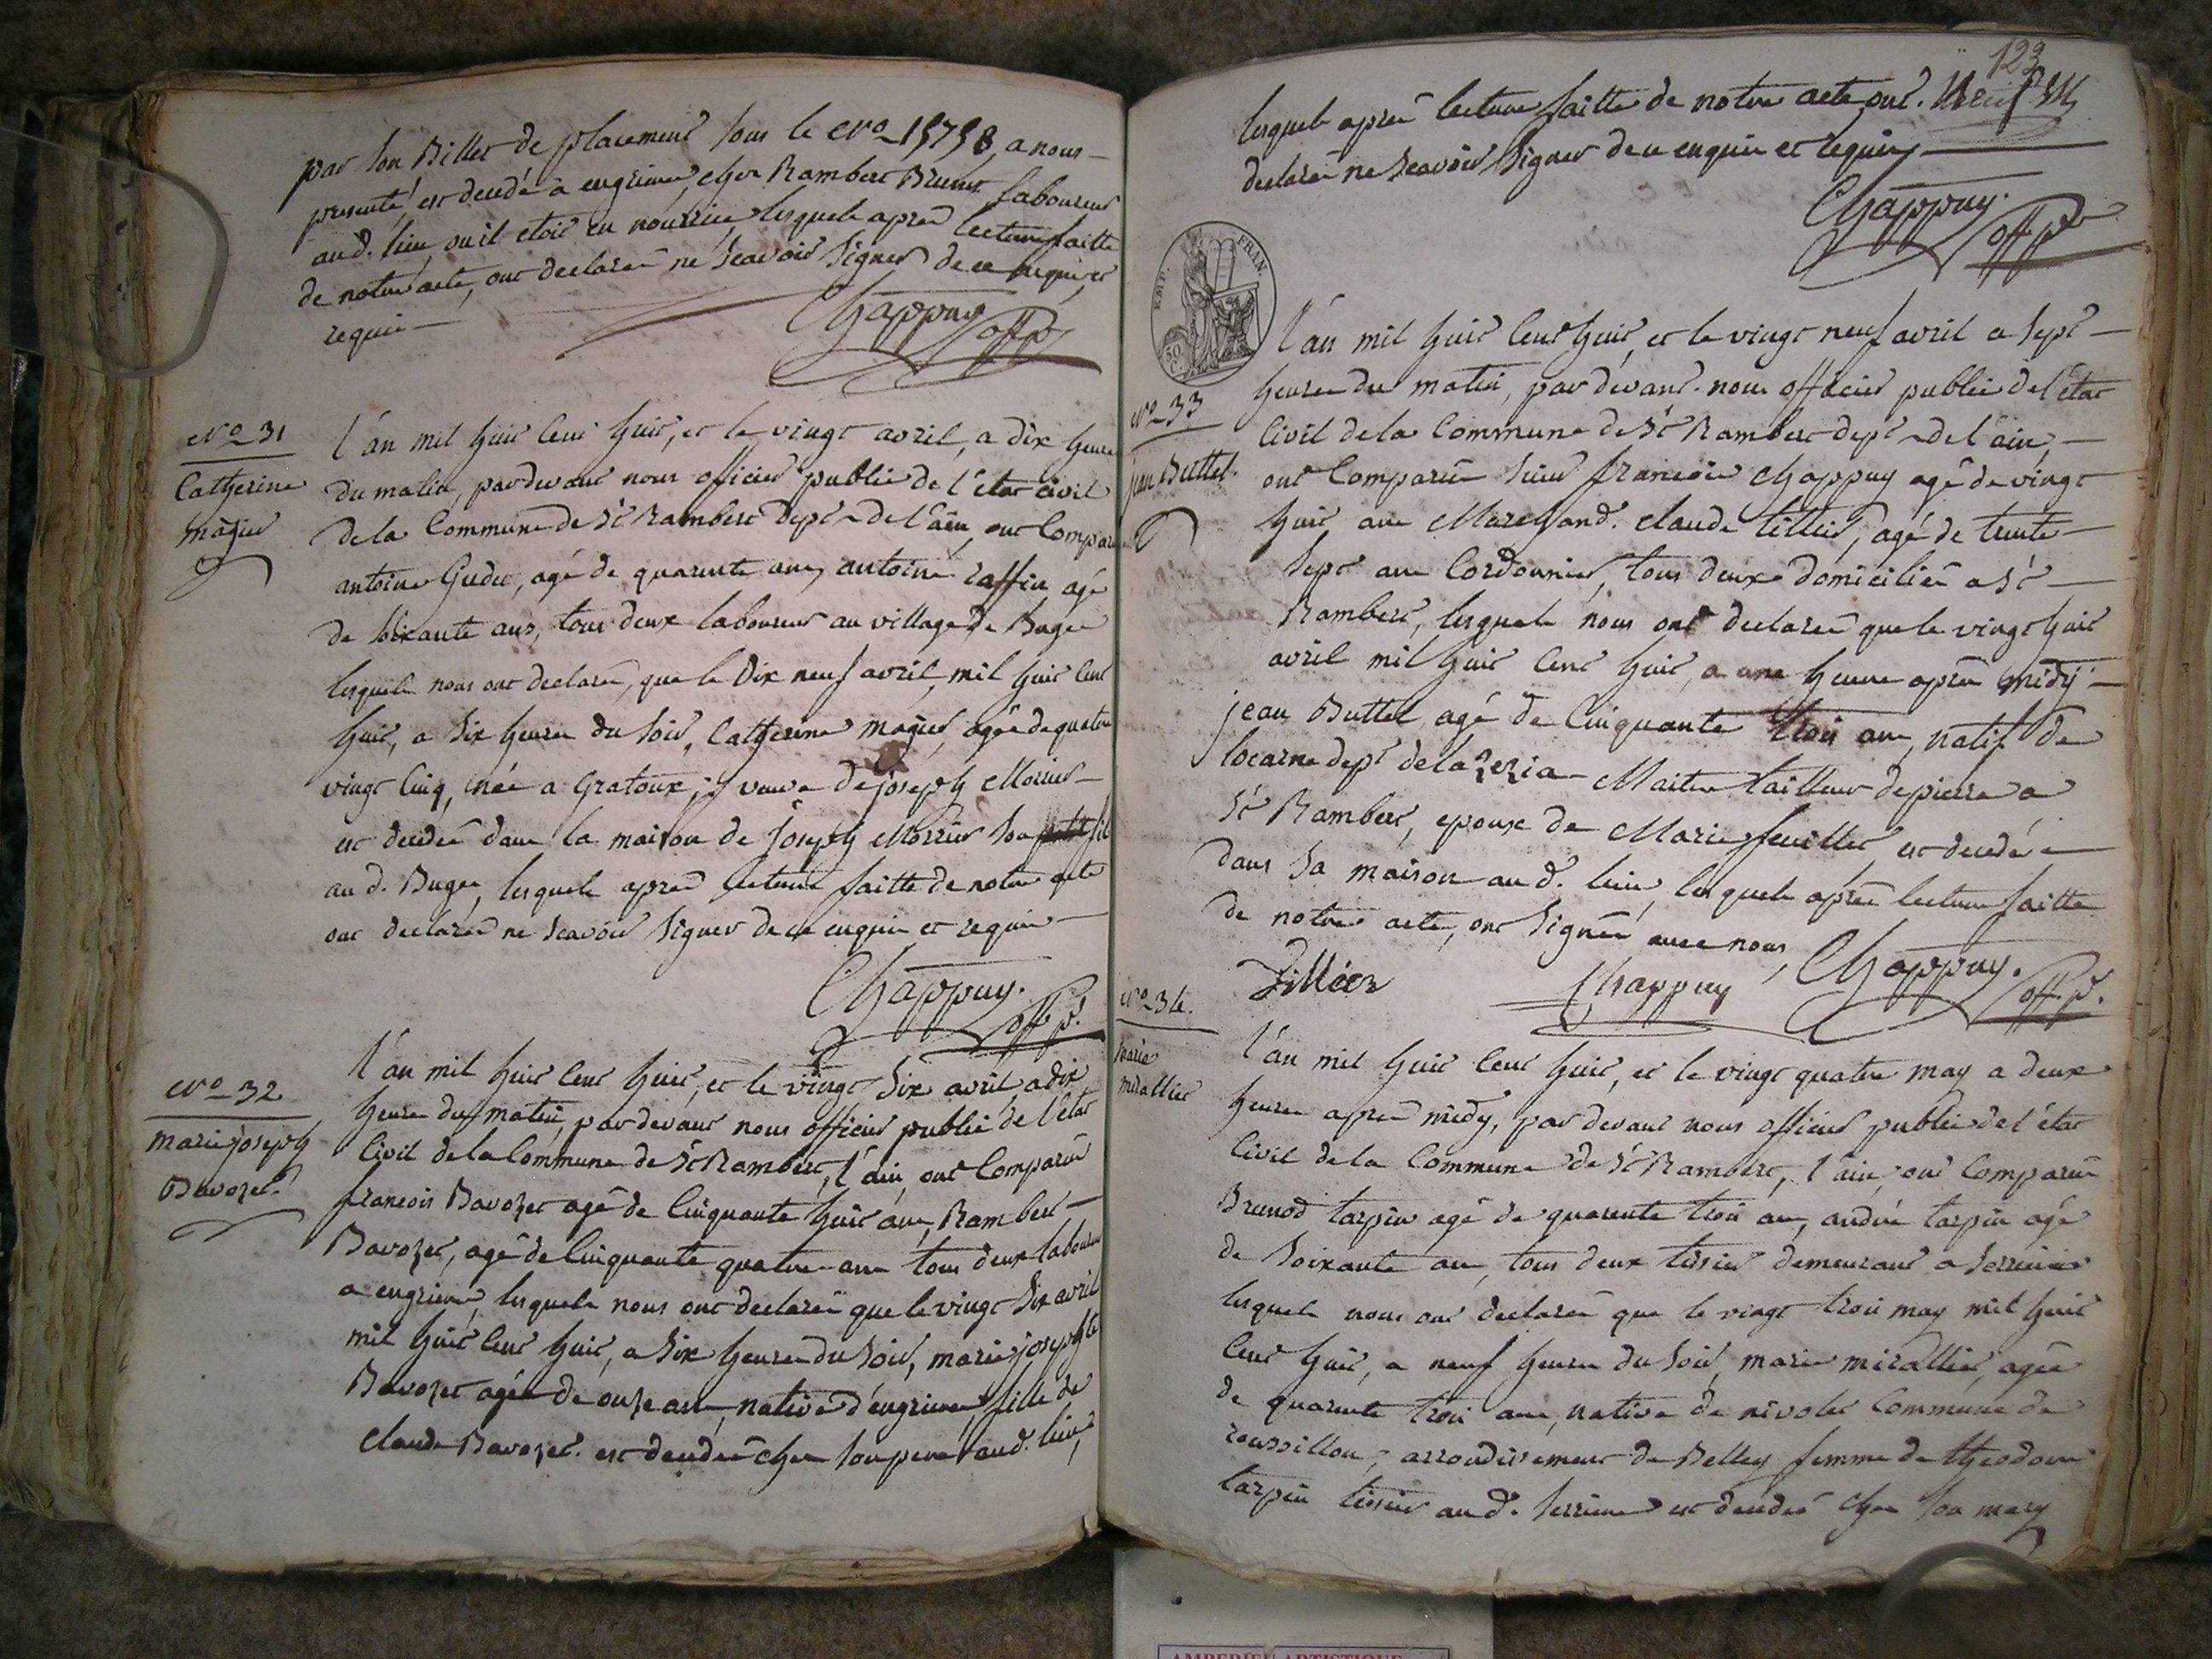 par son Billet de placement sous le No 15758, a nous
presenté, est decedé a engrieux, chez Rambert Brunet laboureur
aud. lieu, ou il etoit en nourrice, lesquels apres lecture faitte
de notre acte, ont declarés ne Scavoir Signer de ce enquis et
requis
Chappuy off. p.
No 31
Catherine
magier
l'an mil huit Cent huit, et le vingt avril, a dix heures
du matin, pardevant nous officier public de l'état civil
de la Commune de St Rambert dept de l'ain, ont Comparu
antoine Gudet, agé de quarante ans, antoine raffin agé
de soixante ans, tous deux laboureur au village de Buges
lesquels nous ont declarés, que le dix neuf avril, mil huit Cent
huit, a Six heures du Soir, Catherine magier, agée de quatre
vingt Cinq, née a Gratoux, veuve de joseph Morrier
est decedée dans la maison de joseph Morrier Son fils
au d. Buges, lesquels apres lecture faitte de notre acte
ont declarés ne Scavoir Signer de ce enquis et requis
Chappuy. off. p.
No 32
marie joseph
Bavozet
l'an mil huit Cent huit, et le vingt Six avril, a dix
heures du matin, pardevant nous officier public de l'état
Civil de la Commune de St Rambert, l'ain, ont Comparus
francois Bavozet agé de Cinquante huit ans, Rambert
Bavozet, agé de Cinquante quatre ans tous deux laboureur
a engrieux, lesquels nous ont declarés que le vingt Six avril
mil huit Cent huit, a Six heures du Soir, marie josephte
Bavozet agée de onze ans, native d'engrieux, fille de
Claude Bavozet. est decedée chez Son pere aud. lieu,
123
lesquels apres lecture faitte de notre acte, ont
declarés ne Scavoir Signer de ce enquis et requis
Chappuy. off. p.
EMP. FRAN.
50 C.
No 33
jean Buttet.
l'an mil huit Cent huit, et le vingt neuf avril a Sept
heures du matin, par devant nous officier public de l'état
Civil de la Commune de St Rambert dept de l'ain,
ont Comparus Sieur francois Chappuy agé de vingt
huit ans Marchand. Claude tillier, agé de trente
Sept ans Cordonnier, tous deux domiciliés a St
Rambert, lesquels nous ont declarés que le vingt huit
avril mil huit Cent huit, a une heure apres midy
jean Buttet, agé de Cinquante trois ans, natif de
locarne dept de la Maitre tailleur de pierre a
St Rambert, epoux de Marie feuillet, est decedé
dans Sa maison au d. lieu, lesquels apres lecture faitte
de notre acte, ont Signés avec nous
Tillier Chappuy Chappuy. off. p.
No 34.
marie
mirallier
l'an mil huit Cent huit, et le vingt quatre may a deux
heures apres midy, par devant nous officier public de l'état
Civil de la Commune de St Rambert, l'ain, ont Comparus
Brunod tarpin agé de quarente trois ans, andré tarpin agé
de Soixante ans, tous deux tissier demeurant a Serrieres
lesquels nous ont declarés que le vingt trois may mil huit
Cent huit, a neuf heures du Soir, marie mirallier, agée
de quarente trois ans, native de nivolet Commune de
roussillon, arrondissement de Belley femme de theodore
tarpin tissier au d. Serrieres est decedée chez Son mary
AMBERIEU ARTISTIQUE